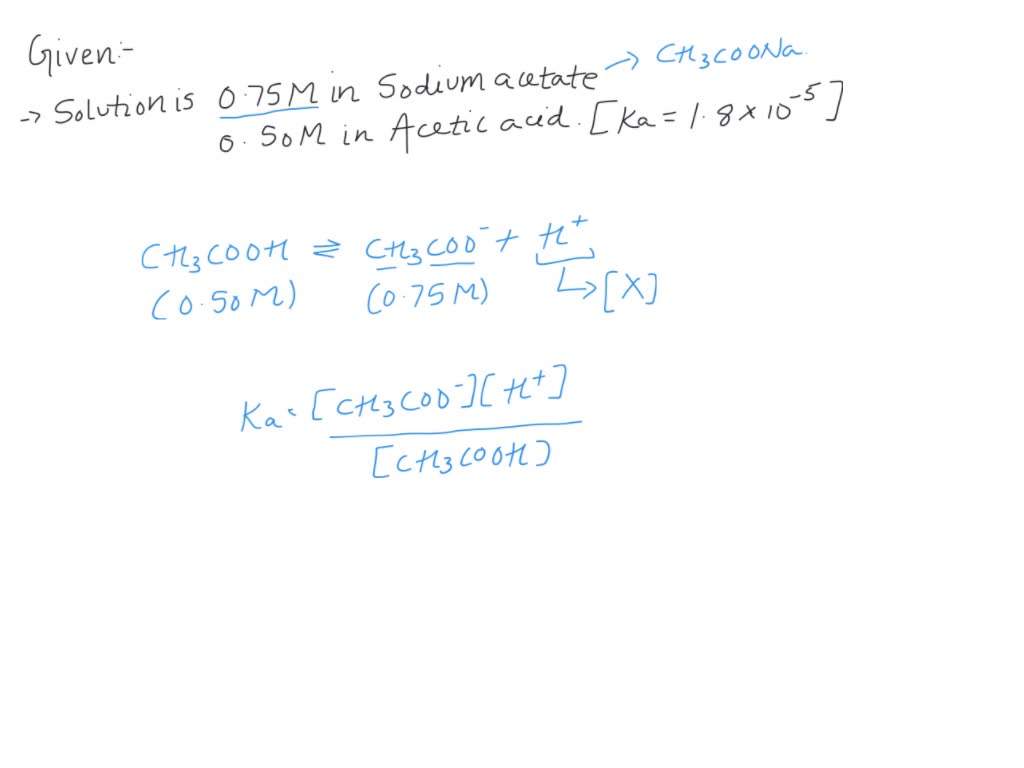 Given:-
→ CH₃COONa
-> Solution is 0.75M in Sodium acetate
0.50M in Acetic acid. [Ka = 1.8 × 10⁻⁵]
CH₃COOH ⇌ CH₃COO⁻ + H⁺
(0.50M) (0.75M) ↳ [X]
Ka = [CH₃COO⁻][H⁺]
[CH₃COOH]